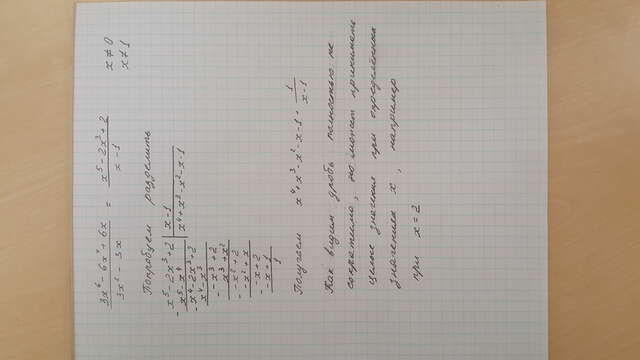 (3x⁶ - 6x⁴ + 6x)/(3x² - 3x) = (x⁵ - 2x³ + 2)/(x - 1) x ≠ 0
x ≠ 1
Попробуем разделить
x⁵ - 2x³ + 2 | x - 1
x⁵ - x⁴ | x⁴ + x³ - x² - x - 1
x⁴ - 2x³ + 2
x⁴ - x³
-x³ + 2
x³ + x²
-x² + 2
-x² + x
-x + 2
-x + 1
1
Получаем x⁴ + x³ - x² - x - 1 + 1/(x - 1)
Как видим дробь полностью не
сократима, но может принимать
целые значения при определённых
значениях x, например
при x = 2